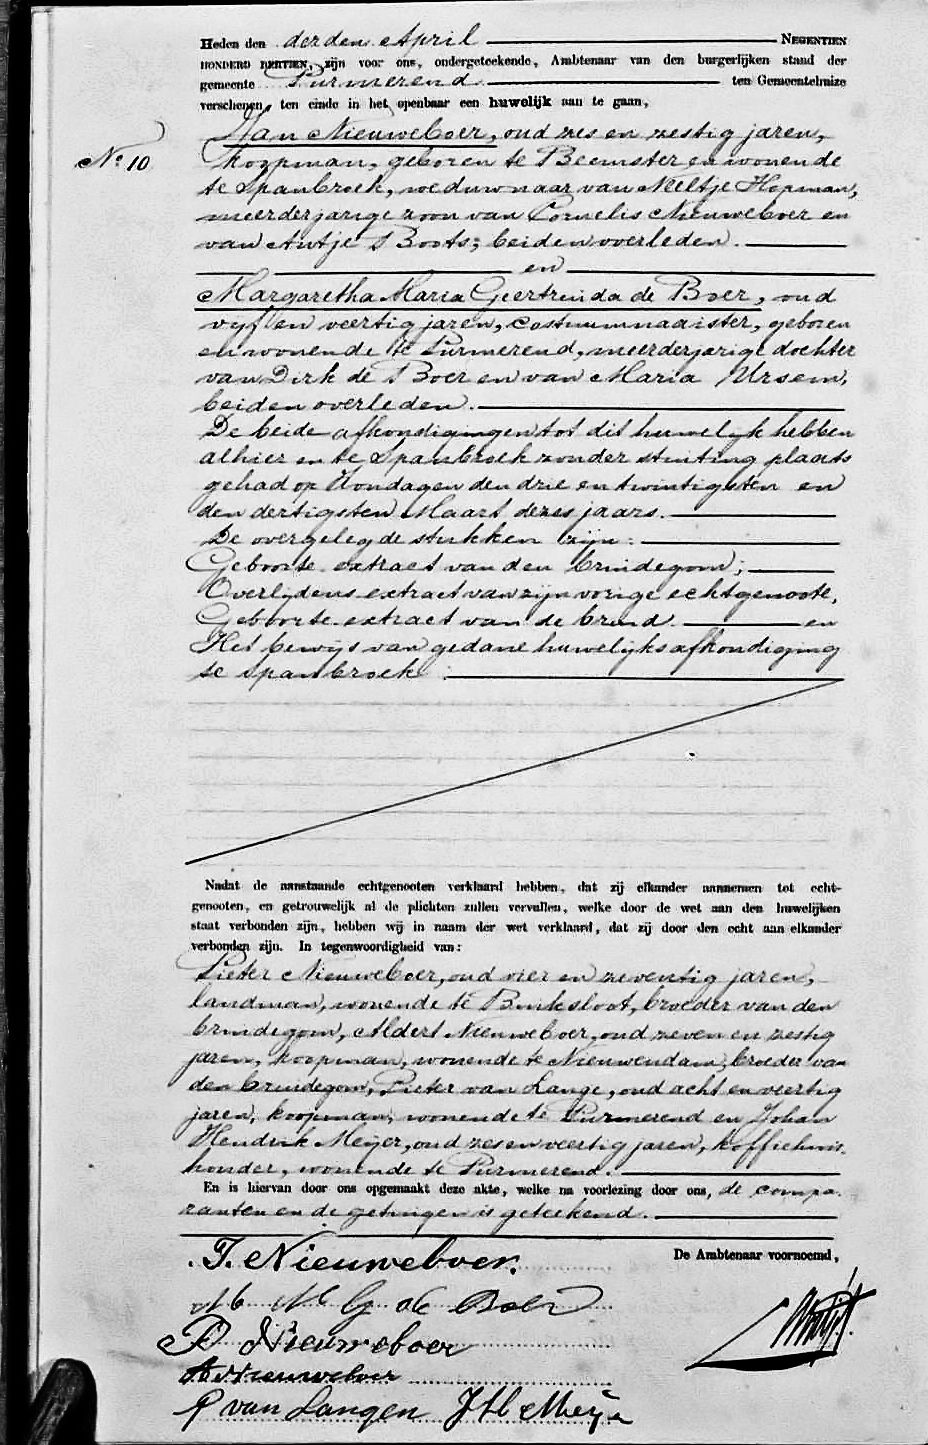 Heden den derden April NEGENTIEN
HONDERD DERTIEN, zijn voor ons, ondergeteekende, Ambtenaar van den burgerlijken stand der
gemeente Purmerend ten Gemeentehuize
verschenen, ten einde in het openbaar een huwelijk aan te gaan,
Jan Nieuweboer, oud zes en zestig jaren,
No 10
koopman, geboren te Beemster en wonende
te Spanbroek, weduwnaar van Neeltje Hopman,
meerderjarige zoon van Cornelis Nieuweboer en
van Antje Boots; beiden overleden.
en
Margaretha Maria Geertruida de Boer, oud
vijf en veertig jaren, costuumnaaister, geboren
en wonende te Purmerend, meerderjarige dochter
van Dirk de Boer en van Maria Ursem,
beiden overleden.
De beide afkondigingen tot dit huwelijk hebben
alhier en te Spanbroek zonder stuiting plaats
gehad op Zondagen den drie en twintigsten en
den dertigsten Maart dezes jaars.
De overgelegde stukken zijn:
Geboorte extract van den bruidegom;
Overlijdens extract van zijn vorige echtgenoote,
Geboorte extract van de bruid en
Het bewijs van gedane huwelijksafkondiging
te Spanbroek
Nadat de aanstaande echtgenooten verklaard hebben, dat zij elkander aannemen tot echt-
genooten, en getrouwelijk al de plichten zullen vervullen, welke door de wet aan den huwelijken
staat verbonden zijn, hebben wij in naam der wet verklaard, dat zij door den echt aan elkander
verbonden zijn. In tegenwoordigheid van:
Pieter Nieuweboer, oud vier en zeventig jaren,
landman, wonende te Buiksloot, broeder van den
bruidegom, Aldert Nieuweboer, oud zeven en zestig
jaren, koopman, wonende te Nieuwendam, broeder van
den bruidegom, Pieter van Lange, oud acht en veertig
jaren, koopman, wonende te Purmerend en Johan
Hendrik Meijer, oud zes en veertig jaren, koffiehuis-
houder, wonende te Purmerend.
En is hiervan door ons opgemaakt deze akte, welke na voorlezing door ons, de compa-
ranten en de getuigen is geteekend.
J. Nieuweboer. De Ambtenaar voornoemd,
M G de Boer
P Nieuweboer
A Nieuweboer
P van Langen J H Meijer